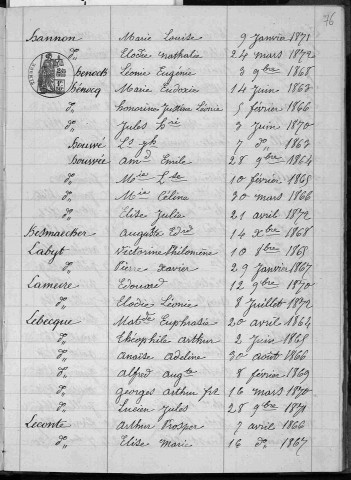 76
Hannon Marie Louise 9 Janvier 1871
d° Elodie Nathalie 24 mars 1872
henocq Léonie Eugénie 3 9bre 1868
hénocq Marie Eudoxie 14 Juin 1863
d° honorine Justine Léonie 5 février 1866
d° Jules hri 3 Juin 1870
houvré Ls Jh 7 d° 1863
houvrée amd Emile 28 9bre 1864
d° Mie Lse 10 février 1865
d° Mie Céline 30 mars 1866
d° Elise Julie 21 avril 1872
Hesmaecher Auguste Edrd 14 Xbre 1868
Labyt Victorine Philomène 10 8bre 1865
d° Pierre Xavier 29 Janvier 1867
Lameire Edouard 12 9bre 1870
d° Elodie Léonie 8 Juillet 1872
Lebecque Matde Euphrasie 20 avril 1862
d° Théophile Arthur 2 Juin 1865
d° Anaïse Adeline 30 août 1866
d° Alfred Augte 8 février 1869
d° georges Arthur frt 16 mars 1870
d° Lucien Jules 28 9bre 1871
Leconte Arthur Prosper 7 avril 1866
d° Elise Marie 16 d° 1867